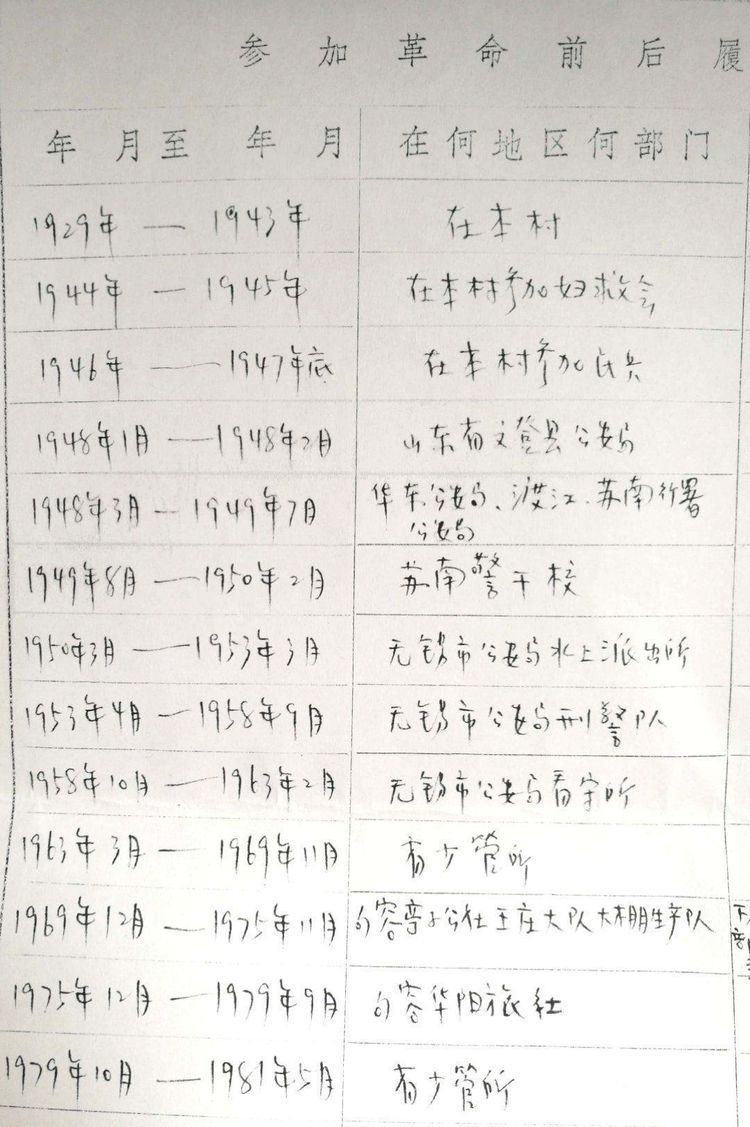 参加革命前后履
年月至年月 在何地区何部门
1929年 — 1943年 在本村
1944年 — 1945年 在本村参加妇救会
1946年 — 1947年底 在本村参加民兵
1948年1月 — 1948年2月 山东省文登县公安局
1948年3月 — 1949年7月 华东公安局、渡江、苏南行署
公安局
1949年8月 — 1950年2月 苏南警干校
1950年3月 — 1953年3月 无锡市公安局水上派出所
1953年4月 — 1958年9月 无锡市公安局刑警队
1958年10月 — 1963年2月 无锡市公安局看守所
1963年3月 — 1969年11月 省少管所
1969年12月 — 1975年11月 句容亭子公社王庄大队大棚生产队
1975年12月 — 1979年9月 句容华阳旅社
1979年10月 — 1981年5月 省少管所